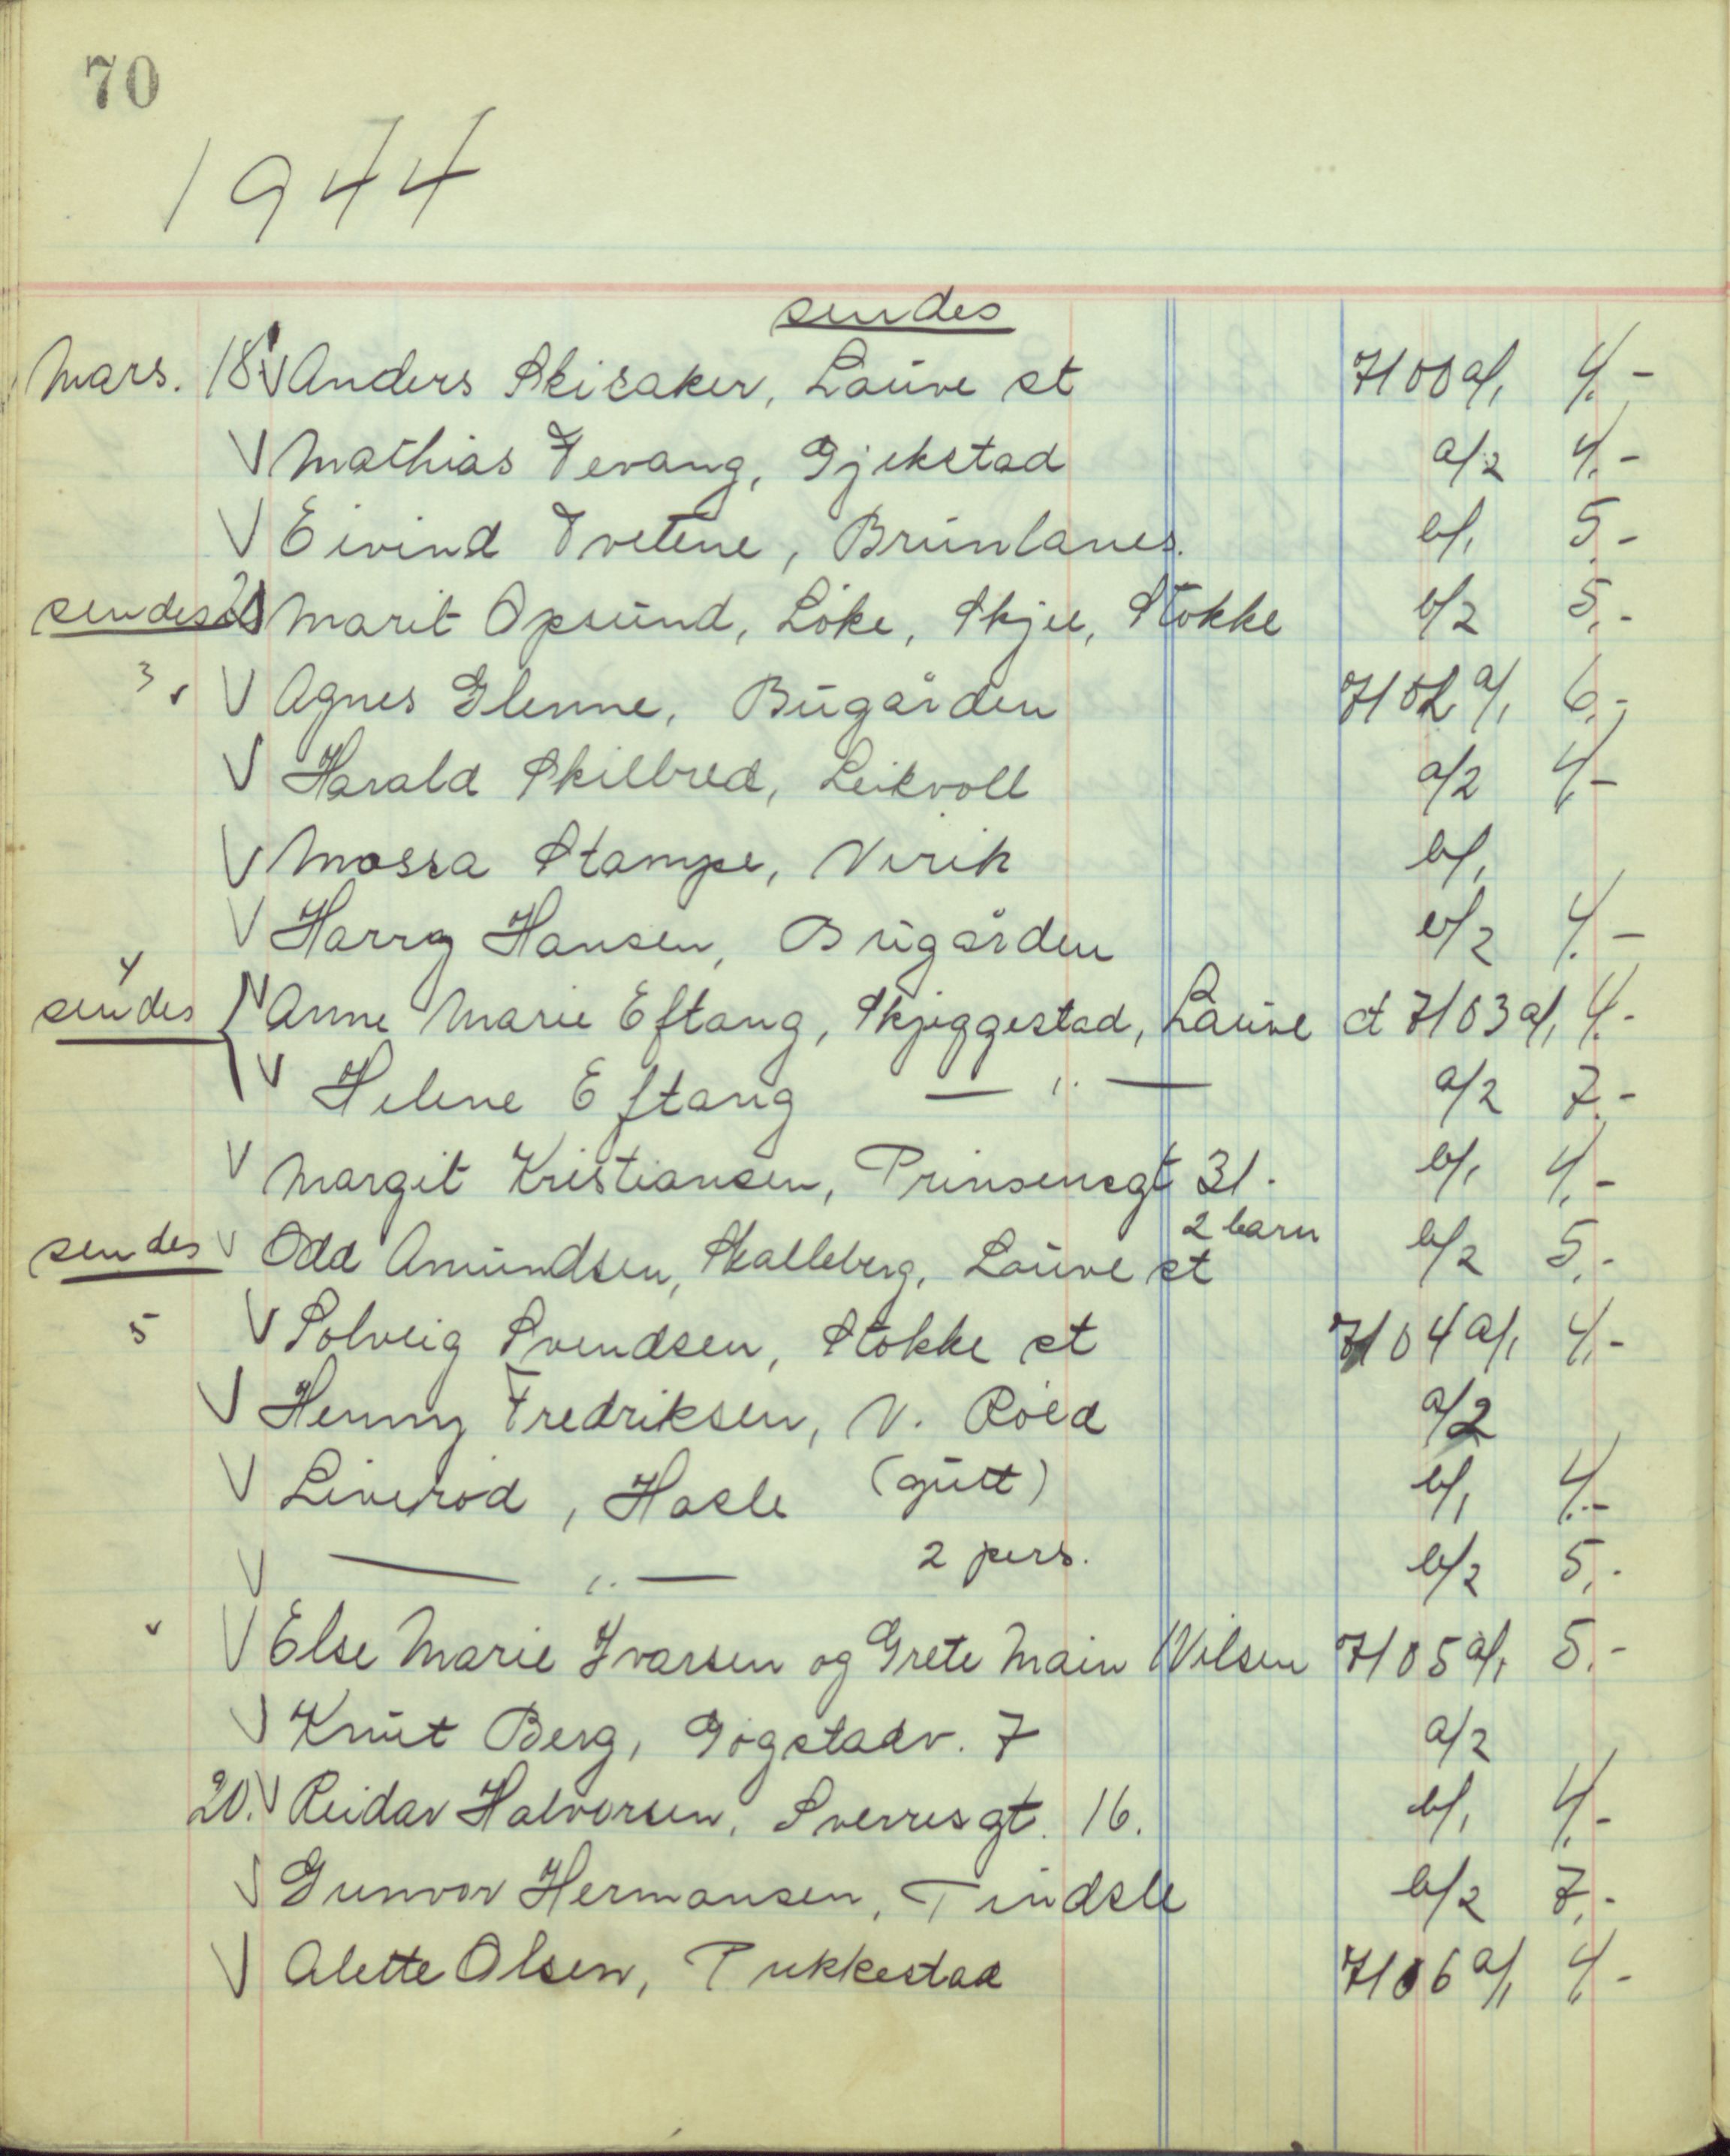 70
1944
sendes
Mars. 18. V Anders Skisaker, Lauve st 7100 a/1 4.-
V Mathias Tevang, Gjekstad a/2 4.-
V Eivind Tvetene, Brunlanes. b/1 5.-
sendes Marit Opsund, Löke, Skjee, Stokke b/2 5.-
3 V V Agnes Glenne, Bugården 7102 a/1 6.-
V Harald Skilbred, Leikvoll a/2 4.-
V Mossa Stampe, Virik b/1
V Harry Hansen, Bugården b/2 4.-
4
sendes { V Anne Marie Eftang, Skjeggestad, Lauve st 7103 a/1 4.-
V Helene Eftang — " — a/2 7.-
V Margit Kristiansen, Prinsensgt 31. b/1 4.-
2 barn
sendes V Odd Amundsen, Skalleberg, Lauve st b/2 5.-
5 V Solveig Svendsen, Stokke st 7104 a/1 4.-
V Henny Fredriksen, V. Röed a/2
V Liveröd, Hasle (gutt) b/1 4.-
V — " — 2 pers. b/2 5.-
V V Else Marie Ivarsen og Grete Main Nilsen 7105 a/1 5.-
V Knut Berg, Gogstadv. 7 a/2
20. V Reidar Halvorsen, Sverresgt. 16. b/1 4.-
V Gunvor Hermansen, Tindsle b/2 7.-
V Alette Olsen, Pukkestad 7106 a/1 4.-